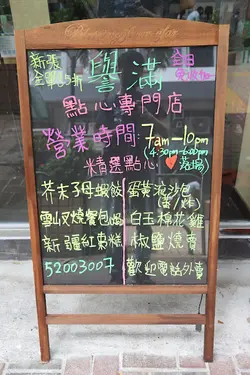 新張
全單85折
譽滿
全日
免收加一
點心專門店
營業時間: 7am-10pm
(4:30pm-6:00pm
落場)
精選點心
芥末子母蝦餃
蛋黃流沙包
(蒸/炸)
雪山叉燒餐包
白玉棉花雞
新疆紅棗糕
椒鹽燒賣
52003007
歡迎電話外賣